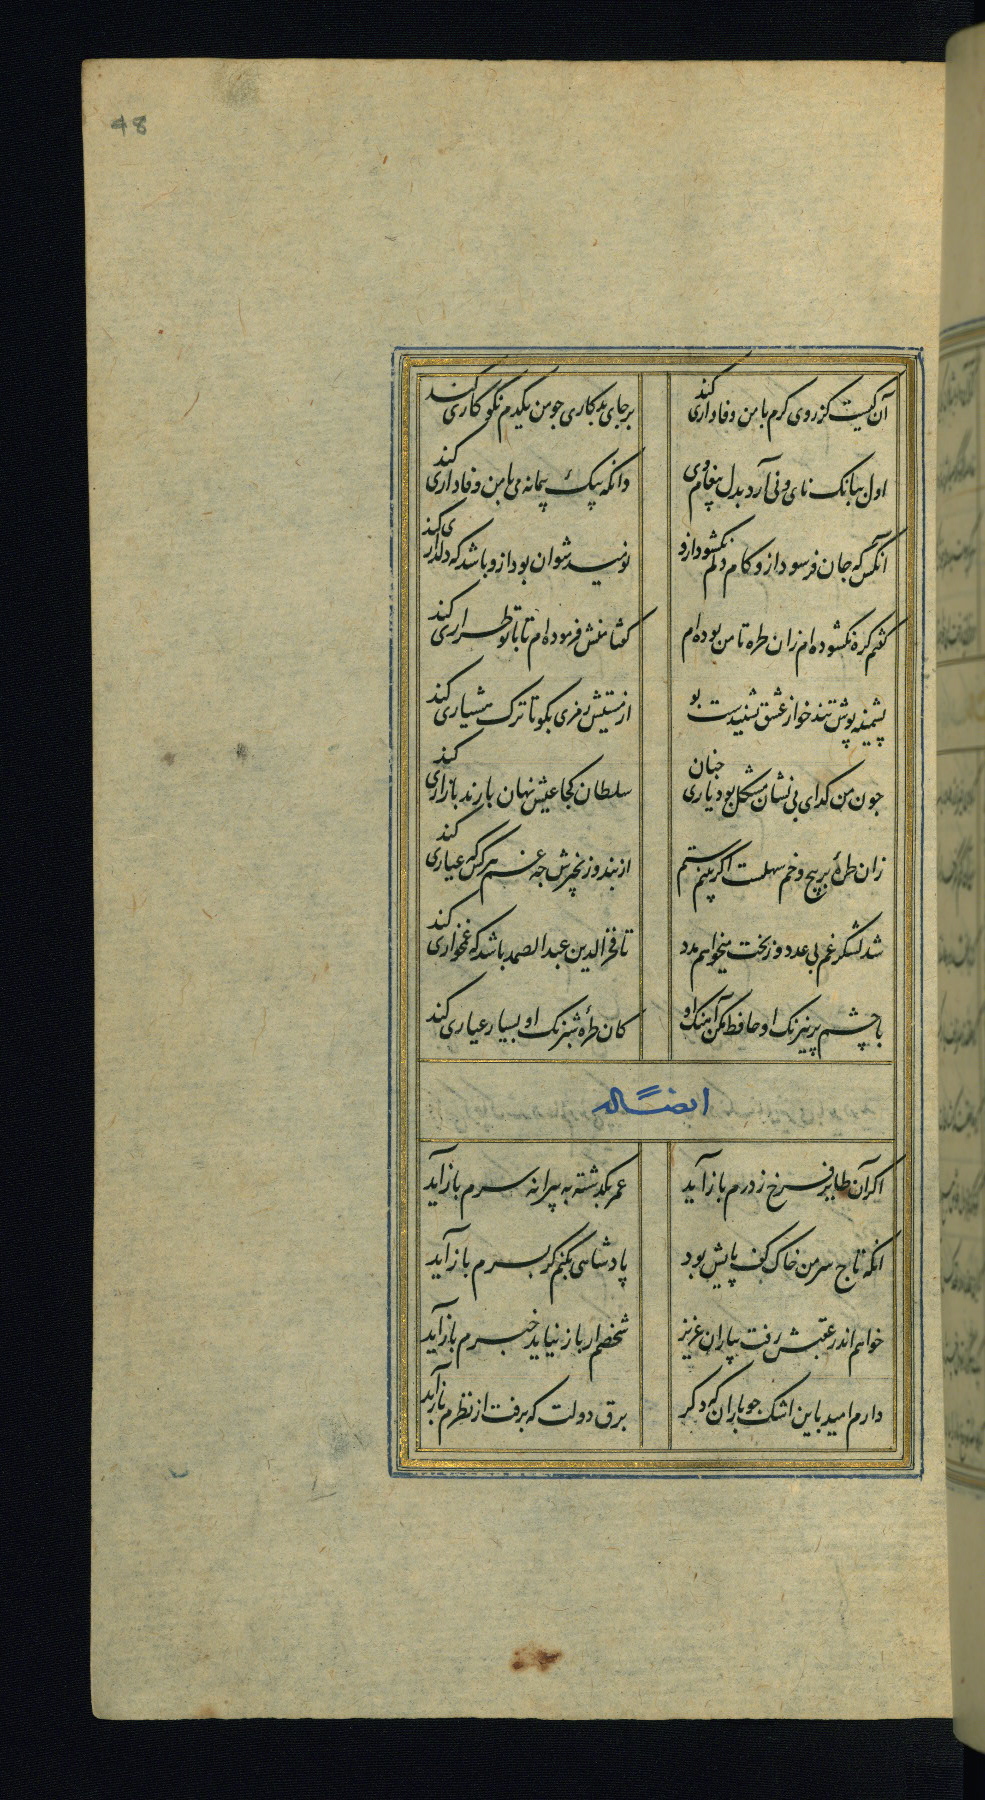 48
آن کیست کز روی کرم با من وفاداری کند برجای بدکاری جو من یکدم نکوکاری کند
اول ببانک نای و نی آرد بدل پیغام وی وانکه بیک پیمانه می با من وفاداری کند
انکس که جان فرسود ازو کام دلم نکشود ازو نومید نتوان بود ازو باشد که دلداری کند
کفتم کره نکشوده‌ام زان طره تا من بوده‌ام کفتا منش فرموده‌ام تا با تو طراری کند
پشمینه پوش تندخو از عشق نشنیدست بو از مستیش رمزی بکو تا ترک هشیاری کند
جون من کدای بی نشان مشکل بود یاری جنان سلطان کجا عیش نهان با رند بازاری کند
زان طرهٔ پر پیج و خم سهلست اکر بینم ستم از بند و زنجیرش جه غم هرکس که عیاری کند
شد لشکر غم بی عدد وز بخت میخواهم مدد تا فخرالدین عبدالصمد باشد که غمخواری کند
با چشم پر نیرنک او حافظ مکن آهنک او کان طرهٔ شبرنک او بسیار عیاری کند
ایضاً له
اکر آن طایر فرخ ز درم بازآید عمر بکذشته به پیرانه سرم بازآید
انکه تاج سر من خاک کف پایش بود پادشاهی بکنم کر بسرم بازآید
خواهم اندر عقبش رفت بیاران عزیز شخصم ار باز نیاید خبرم بازآید
دارم امید باین اشک جو باران که دکر برق دولت که برفت از نظرم بازآید